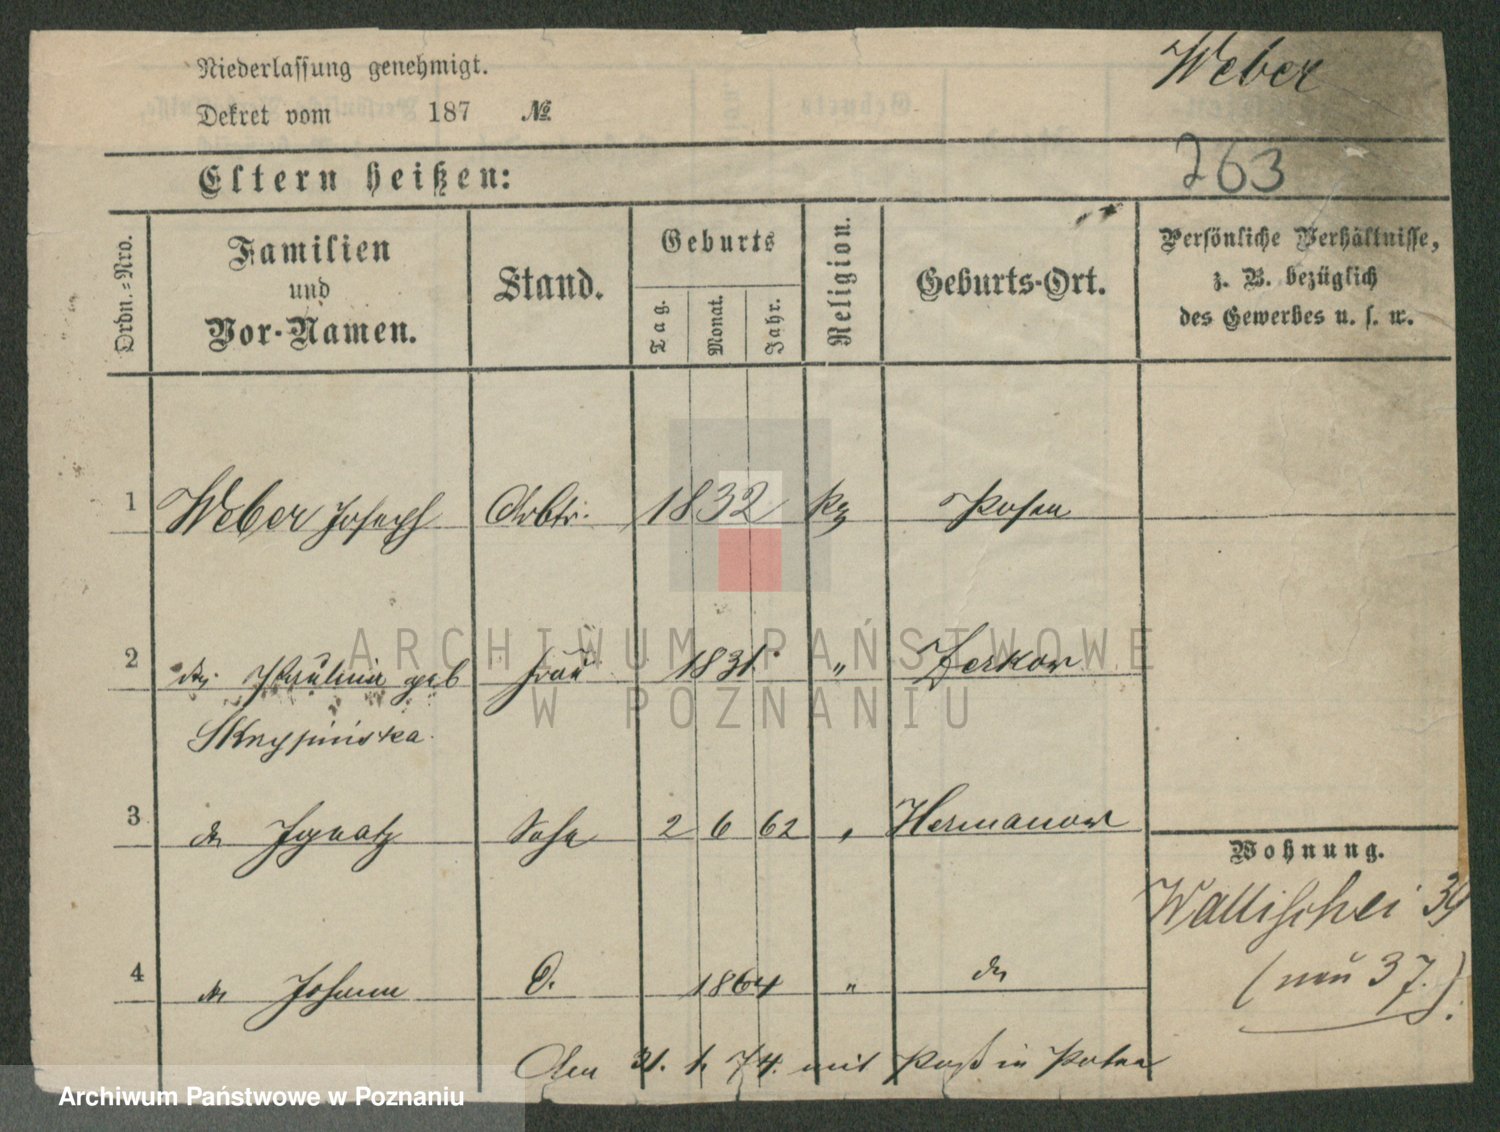 Weber
Niederlassung genehmigt.
Dekret vom 187 №
263
Eltern heißen:
Ordn.=Nro.
Familien
und
Vor-Namen.
Stand.
Geburts
Tag.
Monat.
Jahr.
Religion.
Geburts-Ort.
Persönliche Verhältnisse,
z. B. bezüglich
des Gewerbes u. s. w.
1 Weber Joseph Arbtr. 1832 Posen
2 Paulina geb Frau 1831. " Zerkow
3 Ignatz Sohn 2 6 62 " Hermanow
Wohnung.
Wallischei 39
(neu 37.)
4 Johann 1864 "
31. 1. 74. mit Paß in Posen
ARCHIWUM PAŃSTWOWE
W POZNANIU
Archiwum Państwowe w Poznaniu